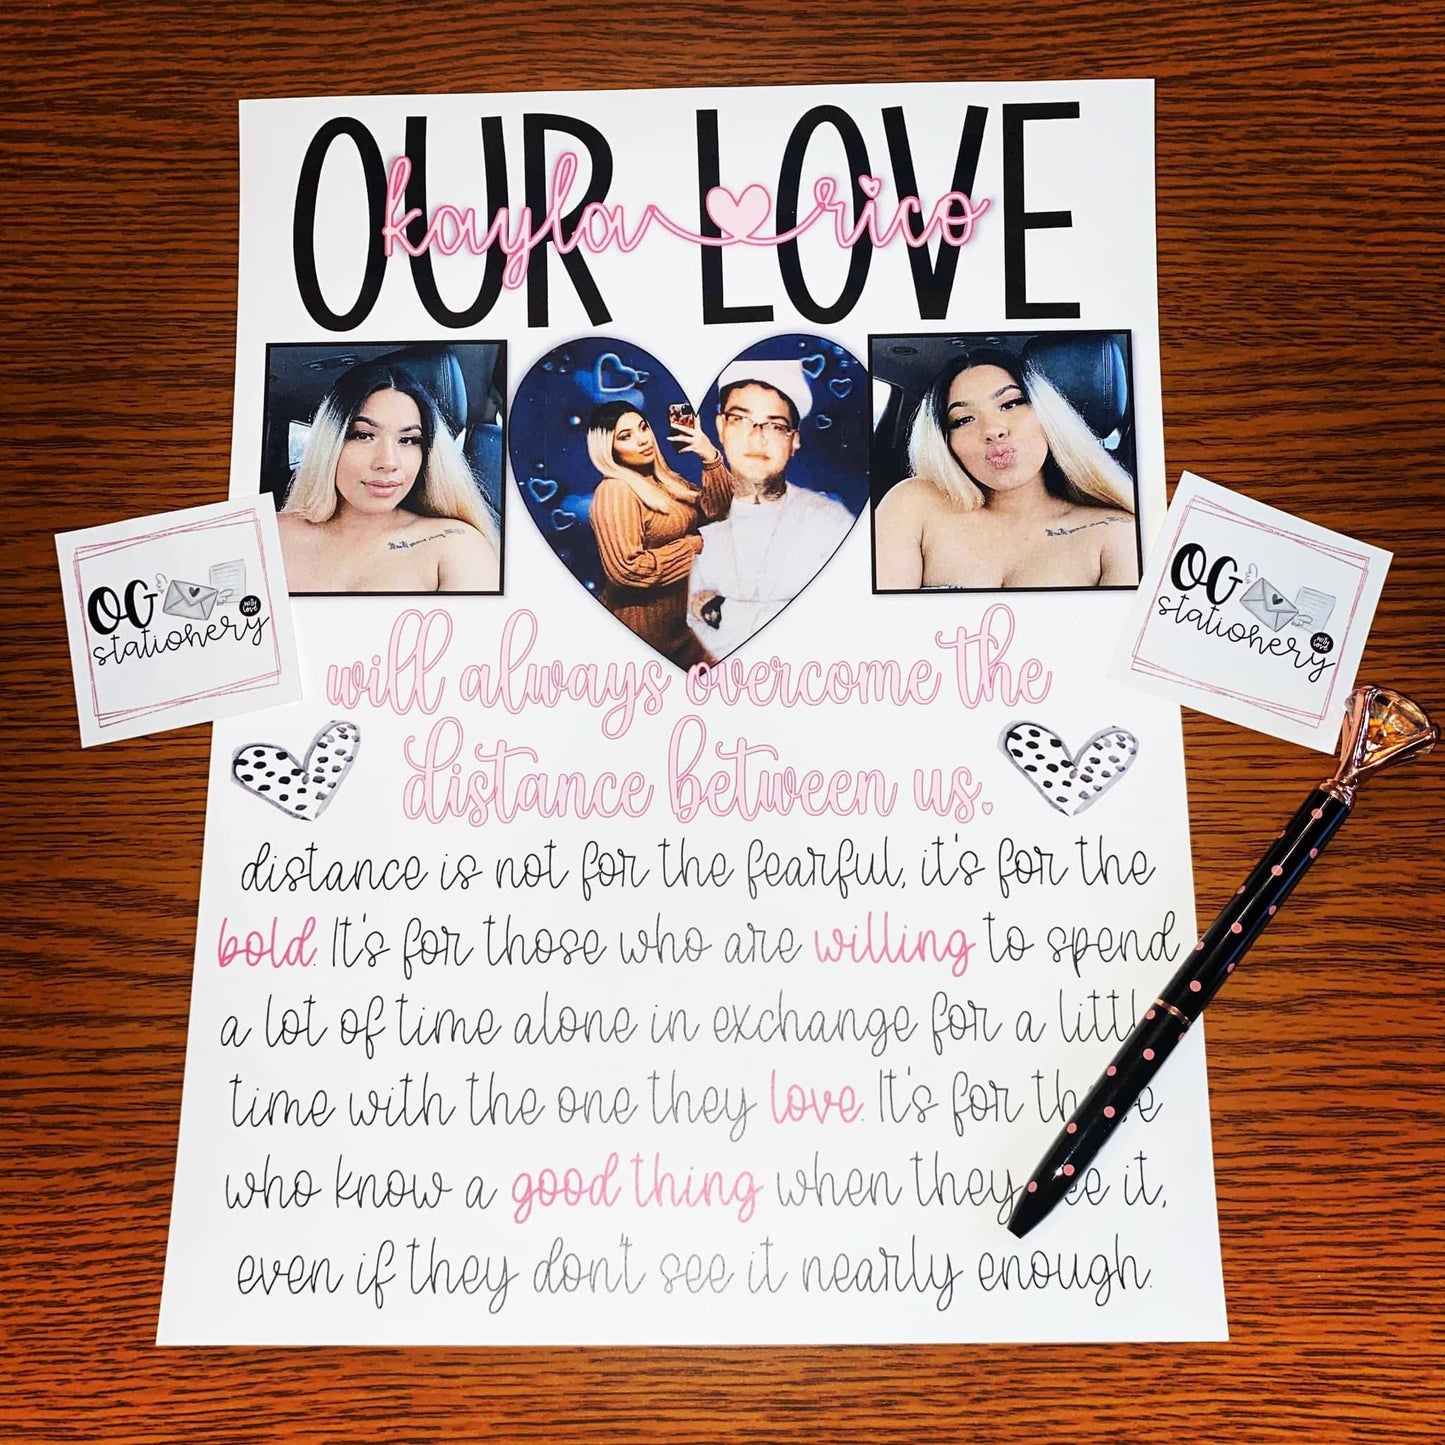 OUR LOVE
kayla rico
will always overcome the
distance between us.
distance is not for the fearful, it's for the
bold. It's for those who are willing to spend
a lot of time alone in exchange for a
time with the one they love. It's for
who know a good thing when they it,
even if they don't see it nearly enough.
OG
stationery
with
love
OG
stationery
with
love